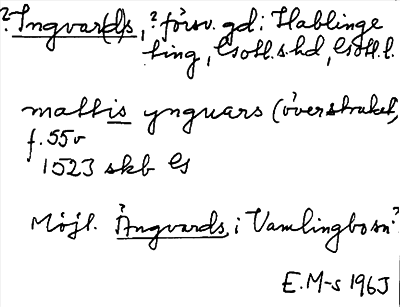 ?Ingvar(d)s, ? försv. gd i Hablinge
ting, Gotl. s. hd, Gotl. l.
mattis ynguars (överstruket,
f. 55v
1523 skb G
Möjl. Ängvards i Vamlingbo sn?
E. M-s 1965